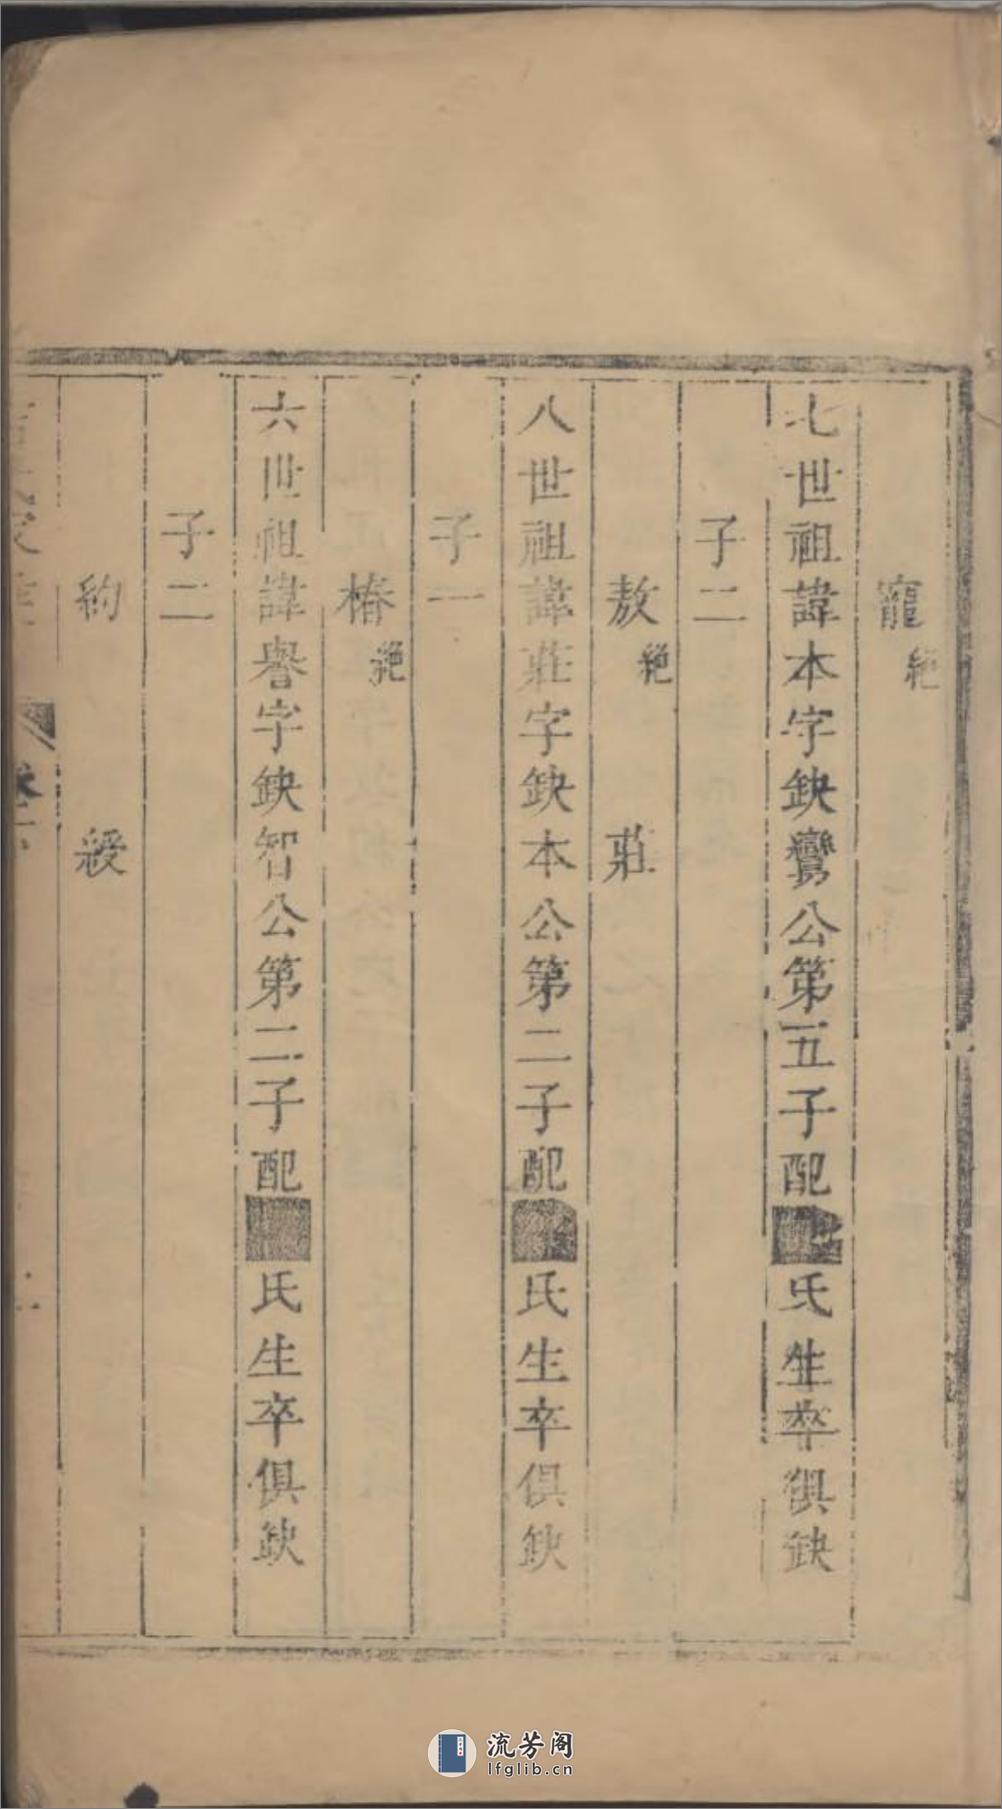 寵 絕
七世祖諱本字缺鸞公第五子配氏生卒俱缺
子二
敖 絕 莊
八世祖諱莊字缺本公第二子配氏生卒俱缺
子一
椿 絕
六世祖諱譽字缺智公第二子配氏生卒俱缺
子二
約 綬
流芳阁
lfglib.cn